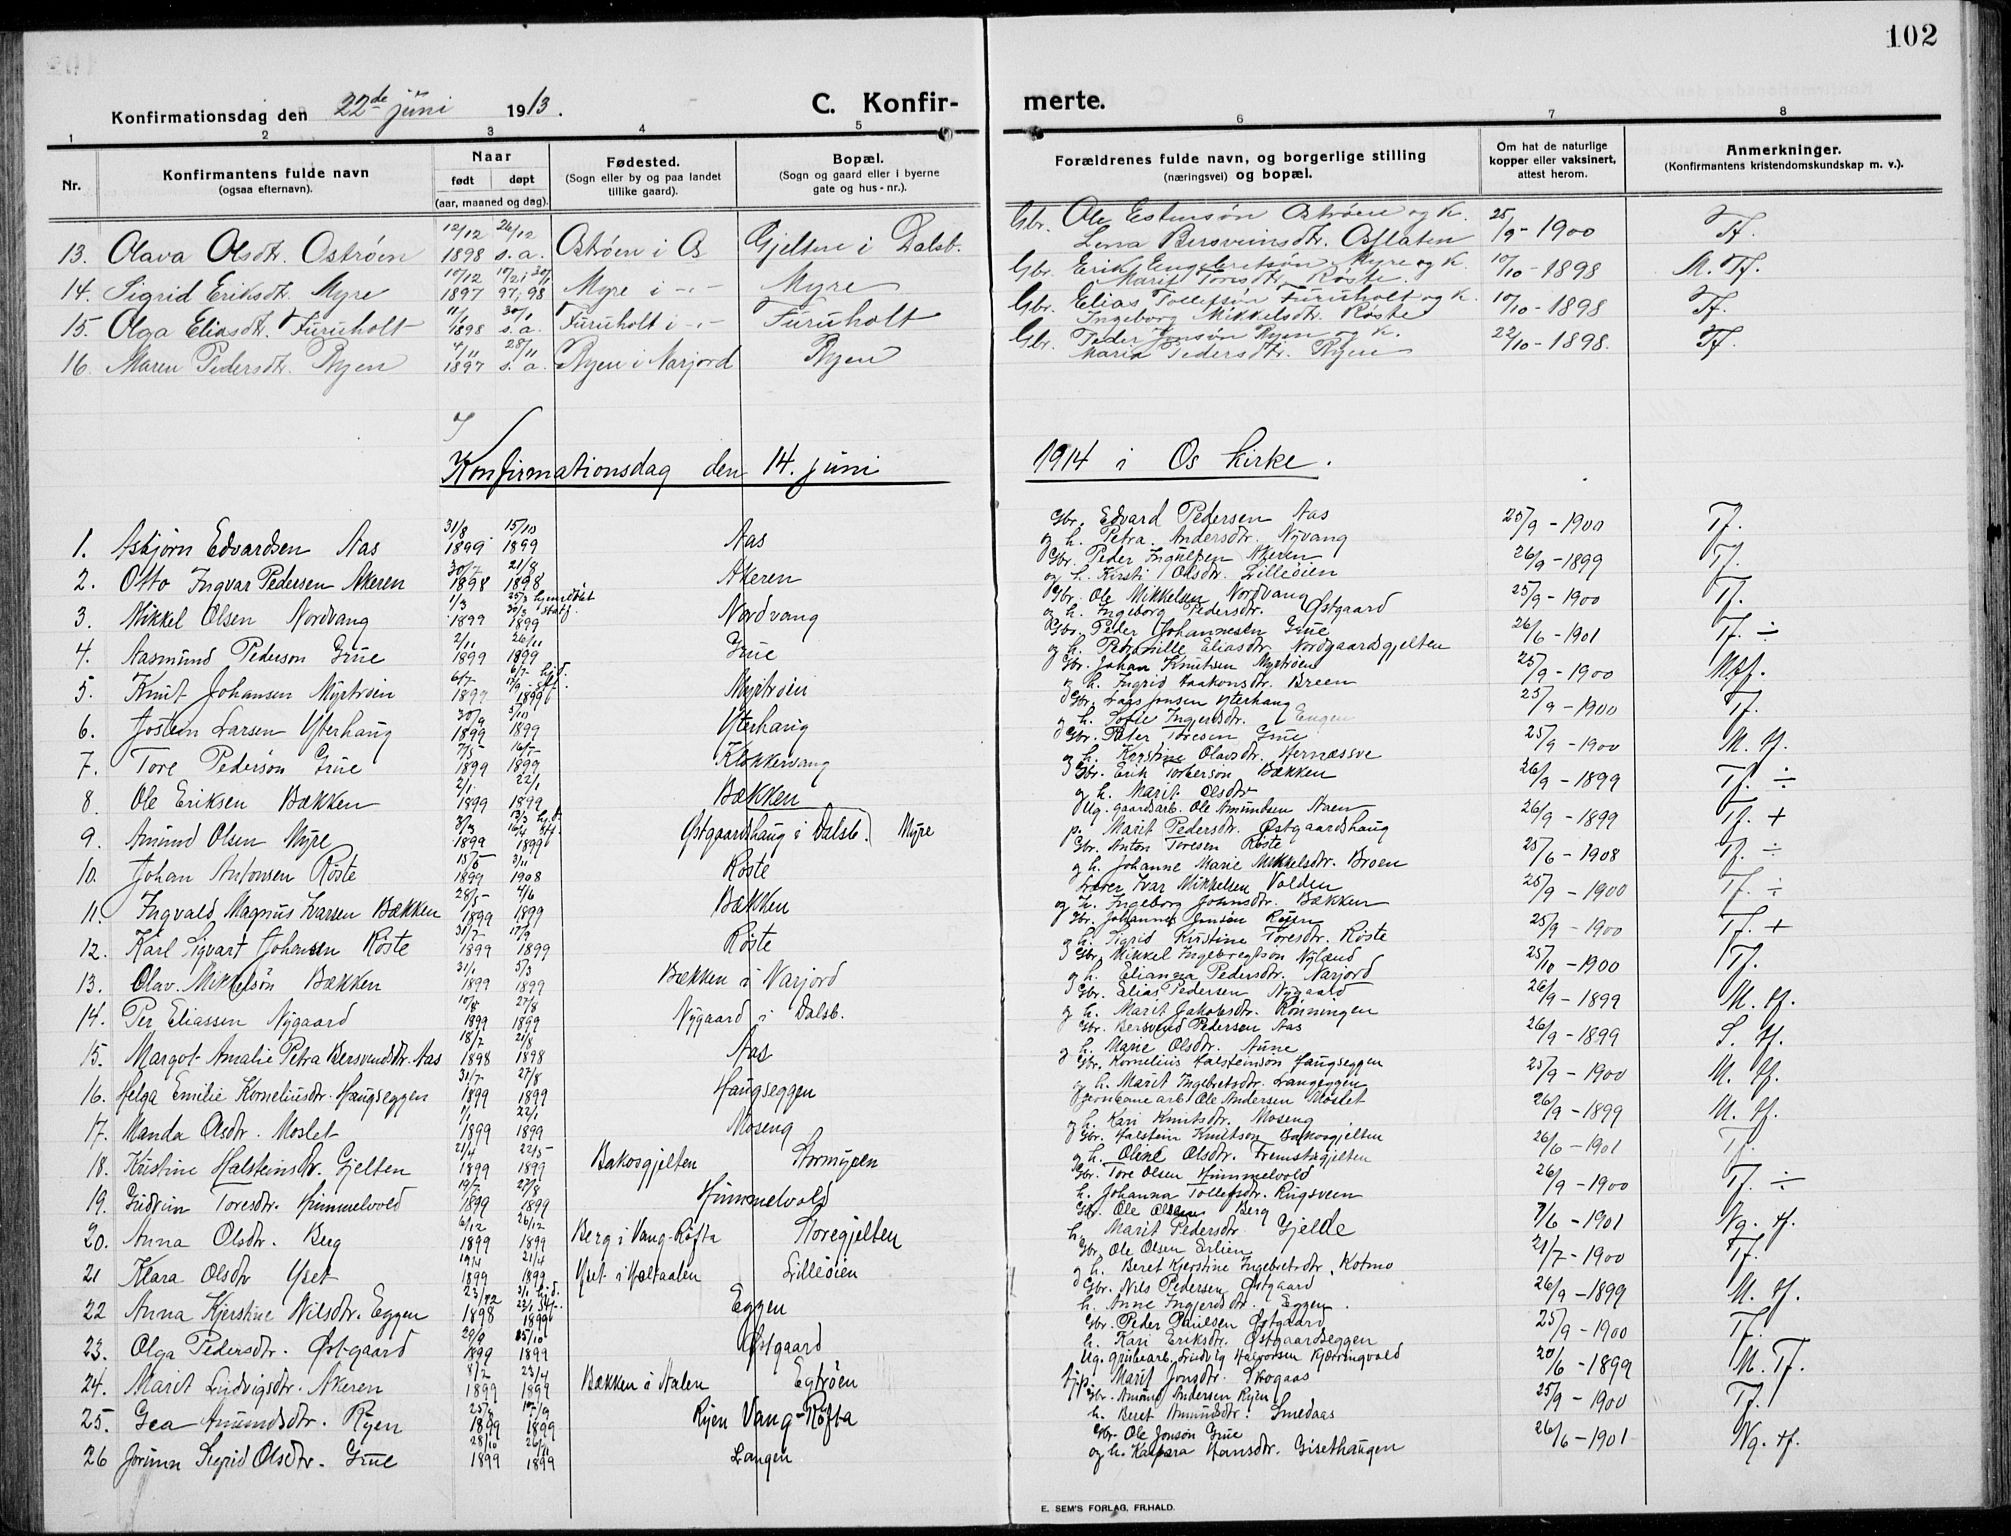 102
Konfirmationsdag den 22de juni 1913.
C. Konfir-
merte.
1 2 3 4 5 6 7 8
Nr.
Konfirmantens fulde navn
(ogsaa efternavn).
Naar
født døpt
(aar, maaned og dag).
Fødested.
(Sogn eller by og paa landet
tillike gaard).
Bopæl.
(Sogn og gaard eller i byerne
gate og hus-nr.).
Forældrenes fulde navn, og borgerlige stilling
(næringsvei) og bopæl.
Om hat de naturlige
kopper eller vaksinert,
attest herom.
Anmerkninger.
(Konfirmantens kristendomskundskap m. v.).
13. Olava Olsdtr. Oströen 12/12 1898 26/12 s.a. Oströen i Os Gjelten i Dalsb. Gbr. Ole Estensön Oströen og k. Lena Bersveinsdtr. Osflaten 25/9-1900 Tf.
14. Sigrid Eriksdtr. Myre 10/12 1897 Myre i -"- Myre Gbr. Erik Engebretsön Myre og k. Marit Toresdtr. Röste 10/10-1898 M. Tf.
15. Olga Eliasdtr. Furuholt 11/1 1898 30/1 s.a. Furuholt i -"- Furuholt Gbr. Elias Tollefsön Furuholt og k. Ingeborg Mikkelsdtr. Röste 10/10-1898 Tf.
16. Maren Pedersdtr. Ryen 4/11 1897 28/11 s.a. Ryen i Narjord Ryen Gbr. Peder Jonsön Ryen og k. Maria Pedersdtr. Ryen 22/10-1898. Tf.
Konfirmationsdag den 14. juni 1914 i Os kirke.
1. Asbjörn Edvardsen Aas 31/8 1899 15/10 1899 Aas Gbr. Edvard Pedersen Aas og h. Petra Andersdtr. Nyvang 25/9-1900 Tf.
2. Otto Ingvar Pedersen Akeren 30/7 1898 21/8 1898 Akeren Gbr. Peder Ingulfsen Akeren og h. Kirsti Olsdtr. Lilleöien 26/9-1899 Tf.
3. Mikkel Olsen Nordvang 1/3 1899 25/3 hjemdöbt 30/3 stadf. 1899 Nordvang Gbr. Ole Mikkelsen Nordvang og h. Ingeborg Pedersdtr. Østgaard 25/9-1900 Tf.
4. Aasmund Pederson Grue 2/11 1899 26/11 1899 Grue Gbr. Peder Johannesen Grue og h. Petronille Eliasdtr. Nordgaardsgjelten 26/6-1901 Tf. ÷
5. Knut Johansen Myrtröen 6/7 1899 6/7 hjd. 17/9 stf. 1899 Myrtröen Gbr. Johan Knutsen Myrtröen og h. Ingrid Haakonsdtr. Breen 25/9-1900 Mtf.
6. Jostein Larsen Ytterhaug 30/9 1899 5/11 1899 Ytterhaug Gbr. Lars Jonsen Ytterhaug og h. Sofie Ingerdsdtr. Engen 25/9-1900 Tf.
7. Tore Pedersön Grue 7/5 1899 16/5 1899 Klokkervang Gbr. Peter Toresen Grue og h. Kjerstine Olavsdtr. Hernæssve 25/9-1900 M. tf.
8. Ole Eriksen Bækken 2/1 1899 22/1 1899 Bækken Gbr. Erik Torberson Bækken og h. Marit Olsdtr 26/9-1899 Tf. ÷
9. Amund Olsen Myre 3/3 1899 13/3 hjd. 16/4 stf. 1899 Østgaardshaug i Dalsb. Myre Ug. gaardsarb. Ole Amundsen Naen p. Marit Pedersdtr. Østgaardshaug 26/9-1899 Tf. +
10. Johan Antonsen Röste 15/5 1899 3/11 1908 Röste Gbr. Anton Toresen Röste og h. Johanne Marie Mikkelsdtr. Broen 25/6-1908 Tf. ÷
11. Ingvald Magnus Ivarsen Bækken 28/5 1899 4/6 1899 Bækken Lærer Ivar Mikkelsen Volden og h. Ingeborg Johnsdtr. Bækken 25/9-1900 Tf. ÷
12. Karl Sigvart Johansen Röste 31/7 1899 17/9 1899 Röste Gbr. Johannes Jonsön Ryen og h. Sigrid Kristine Toresdtr. Röste 25/9-1900 Tf. +
13. Olav Mikkelsön Bækken 31/1 1899 5/3 1899 Bækken i Narjord Gbr. Mikkel Ingebregtson Nyland og h. Elianna Pedersdtr. Narjord 25/10-1900 Tf.
14. Per Eliassen Nygaard 10/8 1899 27/8 1899 Nygaard i Dalsb. Gbr. Elias Pedersen Nygaard og h. Marit Jakobsdtr. Rönningen 26/9-1899 M. tf.
15. Margot Amalie Petra Bersvendsdtr. Aas 18/7 1898 21/8 1898 Aas Gbr. Bersvend Pedersen Aas og h. Marie Olsdtr. Aune 26/9-1899 S. tf.
16. Helga Emilie Korneliusdtr. Haugseggen 31/7 1899 27/8 1899 Haugseggen Gbr. Kornelius Halsteinson Haugseggen og h. Marit Ingebretsdtr. Langeggen 25/9-1900 M. tf.
17. Manda Olsdtr. Moslet 1/1 1899 22/1 1899 Moseng Jernbane arb. Ole Andersen Moslet og h. Kari Knutsdtr. Moseng 26/9-1899 M. tf.
18. Kristine Halsteinsdtr. Gjelten 21/4 1899 22/5 1899 Bakosgjelten Stormyren Gbr. Halstein Knutson Bakosgjelten og h. Oline Olsdtr. Fremstegjelten 26/6-1901 Tf.
19. Gudrun Toresdtr. Himmelvold 19/7 1899 27/8 1899 Himmelvold Gbr. Tore Olsen Himmelvold h. Johanna Tollefsdtr. Rugsveen 26/9-1900 Tf. ÷
20. Anna Olsdtr. Berg 6/12 1899 26/12 1899 Berg i Vang-Röfta Storegjelten Gbr. Ole Olsen Berg h. Marit Pedersdtr. Gjelde 7/6-1901 Ng. tf.
21 Klara Olsdtr Yset 19/4 1899 21/4 1899 Yset i Holtaalen Lilleöien Gbr. Ole Olsen Erlien og h. Beret Kjerstine Ingebretsdtr. Kotmo 21/7-1900 Tf.
22 Anna Kjerstine Nilsdtr. Eggen 23/12 1898 3/1 hjd. 22/1 stf. 1899 Eggen Gbr. Nils Pedersen Østgaard h. Anne Ingjerdsdtr. Eggen. 26/9-1899 M. tf.
23. Olga Pedersdtr. Østgaard 29/9 1899 15/10 1899 Østgaard Gbr. Peder Paulsen Østgaard h. Kari Eriksdtr. Østgaardseggen 25/9-1900 Tf.
24. Marit Ludvigsdtr. Akeren 8/2 1899 23/4 1899 Bækken i Aalen Egtröen Ug. grubearb. Ludvig Halvorsen Kjærringvold Marit Jonsdtr. Skogaas 20/6-1899 M. Tf.
25. Gea Amundsdtr. Ryen 25/8 1899 10/9 1899 Ryen Vang-Röfta Gbr. Amund Andersen Ryen h. Beret Amundsdtr. Smedaas 25/9-1900 Tf.
26 Jorunn Sigrid Olsdtr. Grue 28/10 1899 26/11 1899 Langen Gbr. Ole Jonsön Grue og h. Kaspara Hansdtr. Gisethaugen 26/6-1901 Ng. tf.
E. SEM'S FORLAG, FR.HALD.